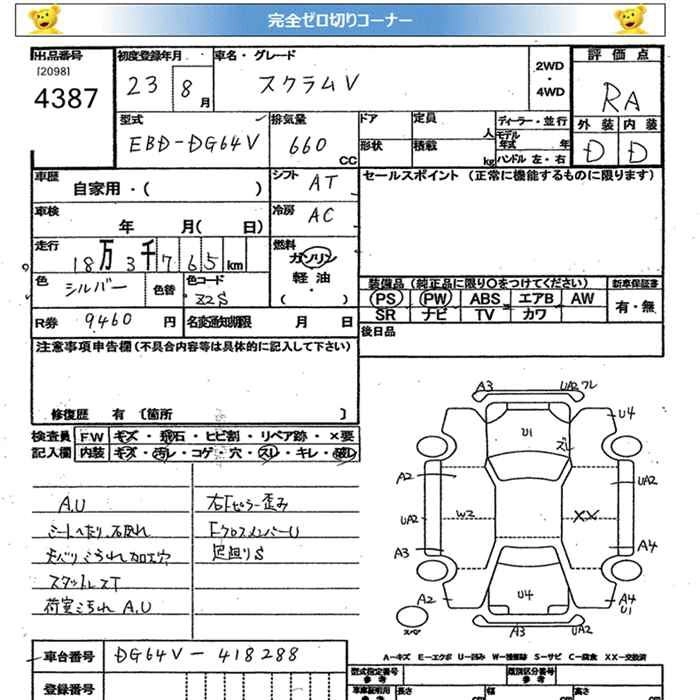 完全ゼロ切りコーナー
出品番号 [2098] 4387
初度登録年月 23 8月
車名・グレード スクラムV
2WD・4WD
評価点 RA
外装 内装 D D
型式 EBD-DG64V
排気量 660 CC
ドア 形状
定員 人
積載 kg
ディーラー・並行
モデル年式 年
ハンドル 左・右
車歴 自家用・( )
シフト AT
セールスポイント (正常に機能するものに限ります)
車検 年 月( 日)
冷房 AC
走行 18万3千765km
燃料 ガソリン 軽油・( )
色 シルバー 色替 色コード Z2S
装備品(純正品に限り○をつけてください) 新車保証書
PS PW ABS エアB AW 有・無
SR ナビ TV カワ
R券 9460円 名変通知期限 月 日
後日品
注意事項申告欄(不具合内容等は具体的に記入して下さい)
修復歴 有〔箇所 〕
検査員 FW キズ・飛石・ヒビ割・リペア跡・×要
記入欄 内装 キズ・汚レ・コゲ・穴・スレ・キレ・破レ
A.U 右Fピラー歪み
シートヘたり. FクロスメンバーU
足廻りS
スタットレスT
荷室よごれ A.U
A3 UA2 U4
U1 ズレ
A2 UA2
UA2 W2 XX
A3 A4
A2 U4 A4 U1
スペア A3 UA2
A-キズ E-エクボ U-凹み W-補修跡 S-サビ C-腐食 XX-交換済
車台番号 DG64V-418288
型式指定番号 参考 類別区分番号 参考
登録番号
車庫証明用 参考 長さ 幅 高さ